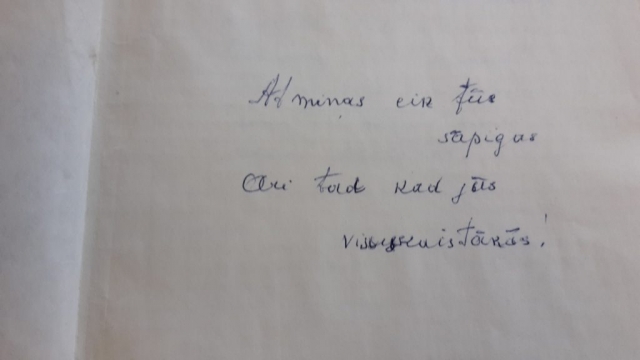 Atmiņas cik jūs
sāpigas
Ari tad kad jūs
visskaistākās!